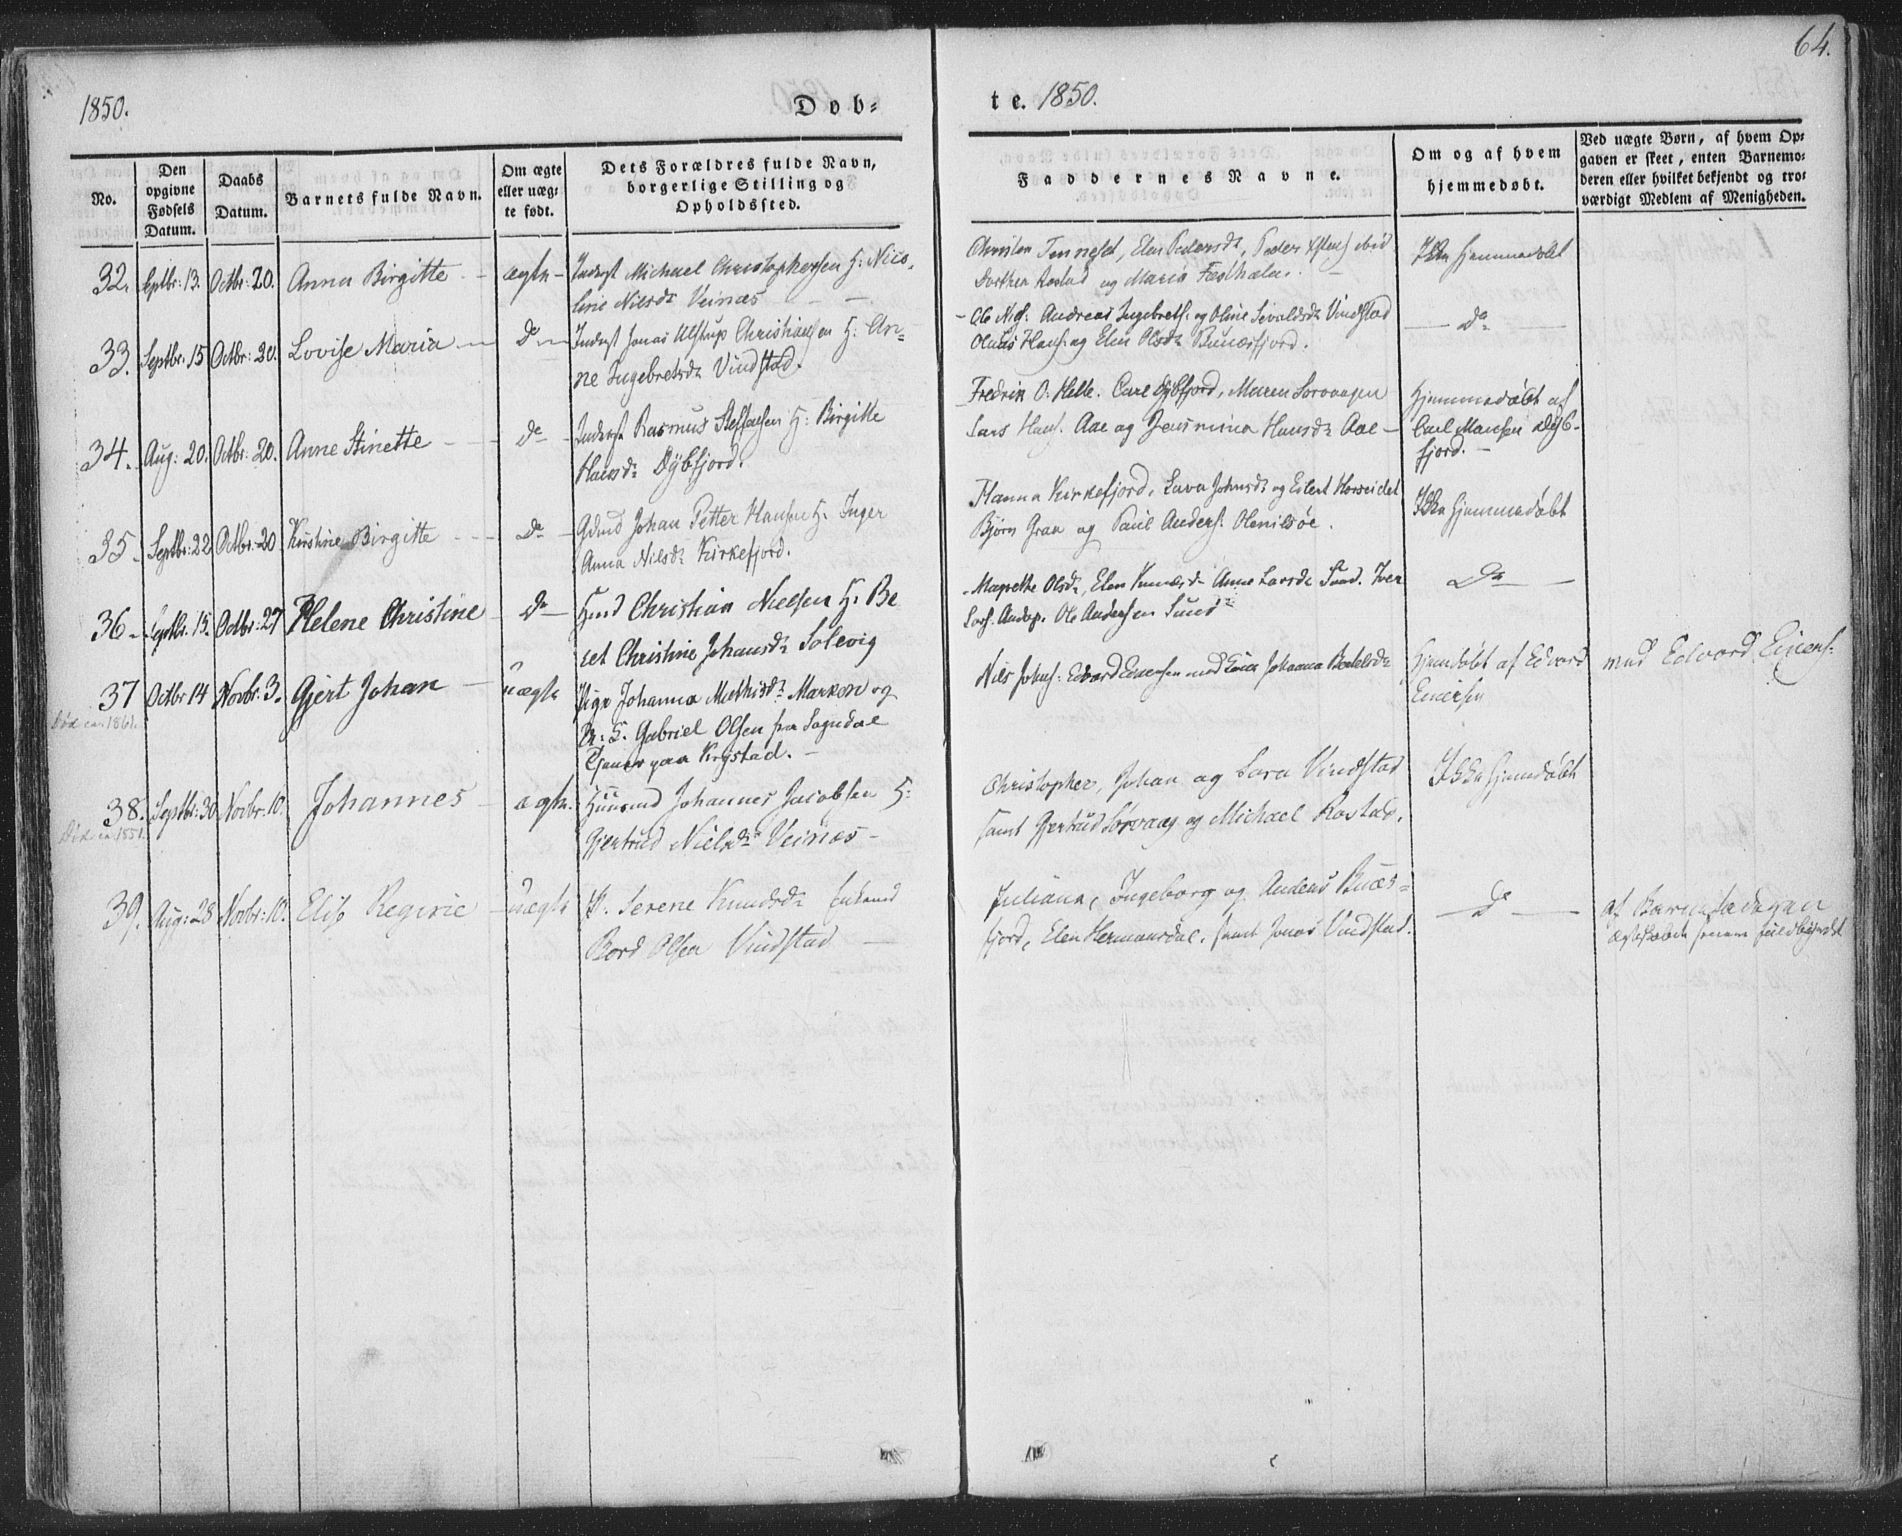 64.
1850.
Dob=
te. 1850.
No.
Den
opgivne
Fødsels
Datum.
Daabs
Datum.
Barnets fulde Navn.
Om ægte
eller uæg=
te født.
Dets Forældres fulde Navn,
borgerlige Stilling og
Opholdssted.
Faddernes Navne.
Om og af hvem
hjemmedøbt.
Ved uægte Børn, af hvem Op=
gaven er skeet, enten Barnemo=
deren eller hvilket bekjendt og tro=
værdigt Medlem af Menigheden.
32. Septbr: 13. Octbr: 20. Anna Birgitte - ægte - Inderst Michael Christophersen H: Nico=
line Nilsd. Veinæs
Elen Pedersd.
og Maria
Ikke hjemmedøbt
33. Septbr: 15 Octbr: 20. Lovise Maria - Do - Inderst Jonas Ulstrup Christiansen H: An=
ne Ingebretsd. Vindstad.
Andreas Ingebrets. og Oline Sivaldsd. Vindstad
Hans. og Elen Olsd. Bunæsfjord.
Do
34. Aug: 20. Octbr: 20. Anne Stinette - Do - Inderst Rasmus Steffensen H: Birgitte
Hansd. Dybfjord.
Fredrik O: Helle. Carl Dybfjord, Maren Sørvaagen
Lars Hans. Aae og Jensmina Hansd. Aae -
Hjemmedøbt af
Carl Hansen Dyb=
fjord. -
35. Septbr: 22 Octbr: 20 Kirstine Birgitte - Do - Gdmd Johan Petter Hansen H: Inger
Anna Nilsd. Kirkefjord.
Hanna Kirkefjord, Johnsd. og Eilert Horseidet
Bjørn Graa og Paul Anders. Olenilsøe.
Ikke hjemmedøbt
36 - Septbr. 15. Octbr: 27 Helene Christine - Do - Christian Nielsen H: Be
ret Christine Johansd. Solevig
Olsd., Elen Anne Larsd. Sund. Iver
Lars. Ole Andersen Sund
Do
37 Octbr 14 Novbr: 3. Gjert Johan - uægte Pige Johanna Mathisd. Marken og
Gabriel Olsen fra Sogndal
Tjener paa Krystad. -
Død ca. 1861.
Nils Johns: Edvard Einersen med Johanna
Hjemdøbt af Edvard
Einersen
med Edvard Einers.
38. Septbr: 30 Novbr: 10. Johannes - ægte. Huusmd Johannes Jacobsen H:
Gjertrud Nielsd. Veinæs -
Død ca 1851.
Christopher, Johan og Sara Vindstad
samt Gjertrud Sørvaag og Michael Rostad.
Ikke hjemdøbt
39. Aug: 28 Novbr: 10. Elise Regine - uægte P. Serene Knudsd.
Bord Olsen Vindstad -
Juliana, Ingeborg og Anders Buæs=
fjord, Elen Hermansdal, samt Jonas Vindstad.
Do
af Barnefaderen
Ægteskabet senere fuldbyrdet